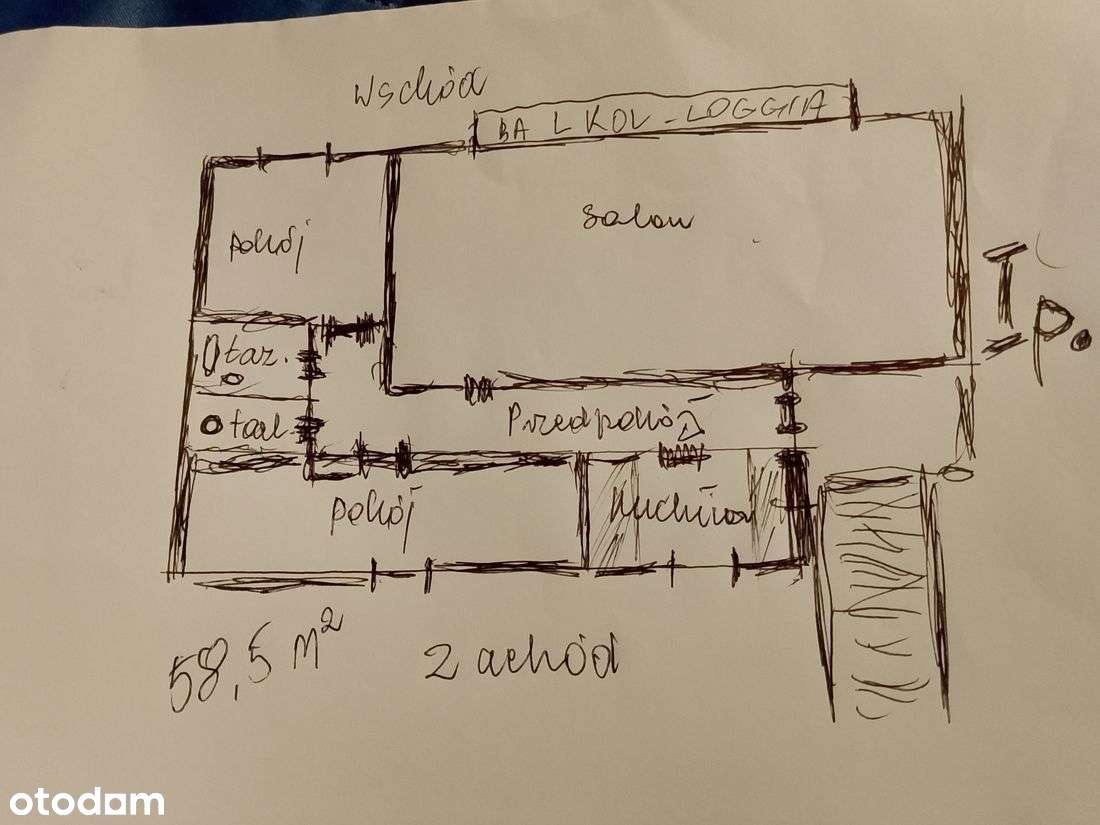 Wschód
BALKON - LOGGIA
Salon
pokój
I p.
łaz.
Przedpokój
pokój
Kuchnia
58,5 m²
Zachód
otodom